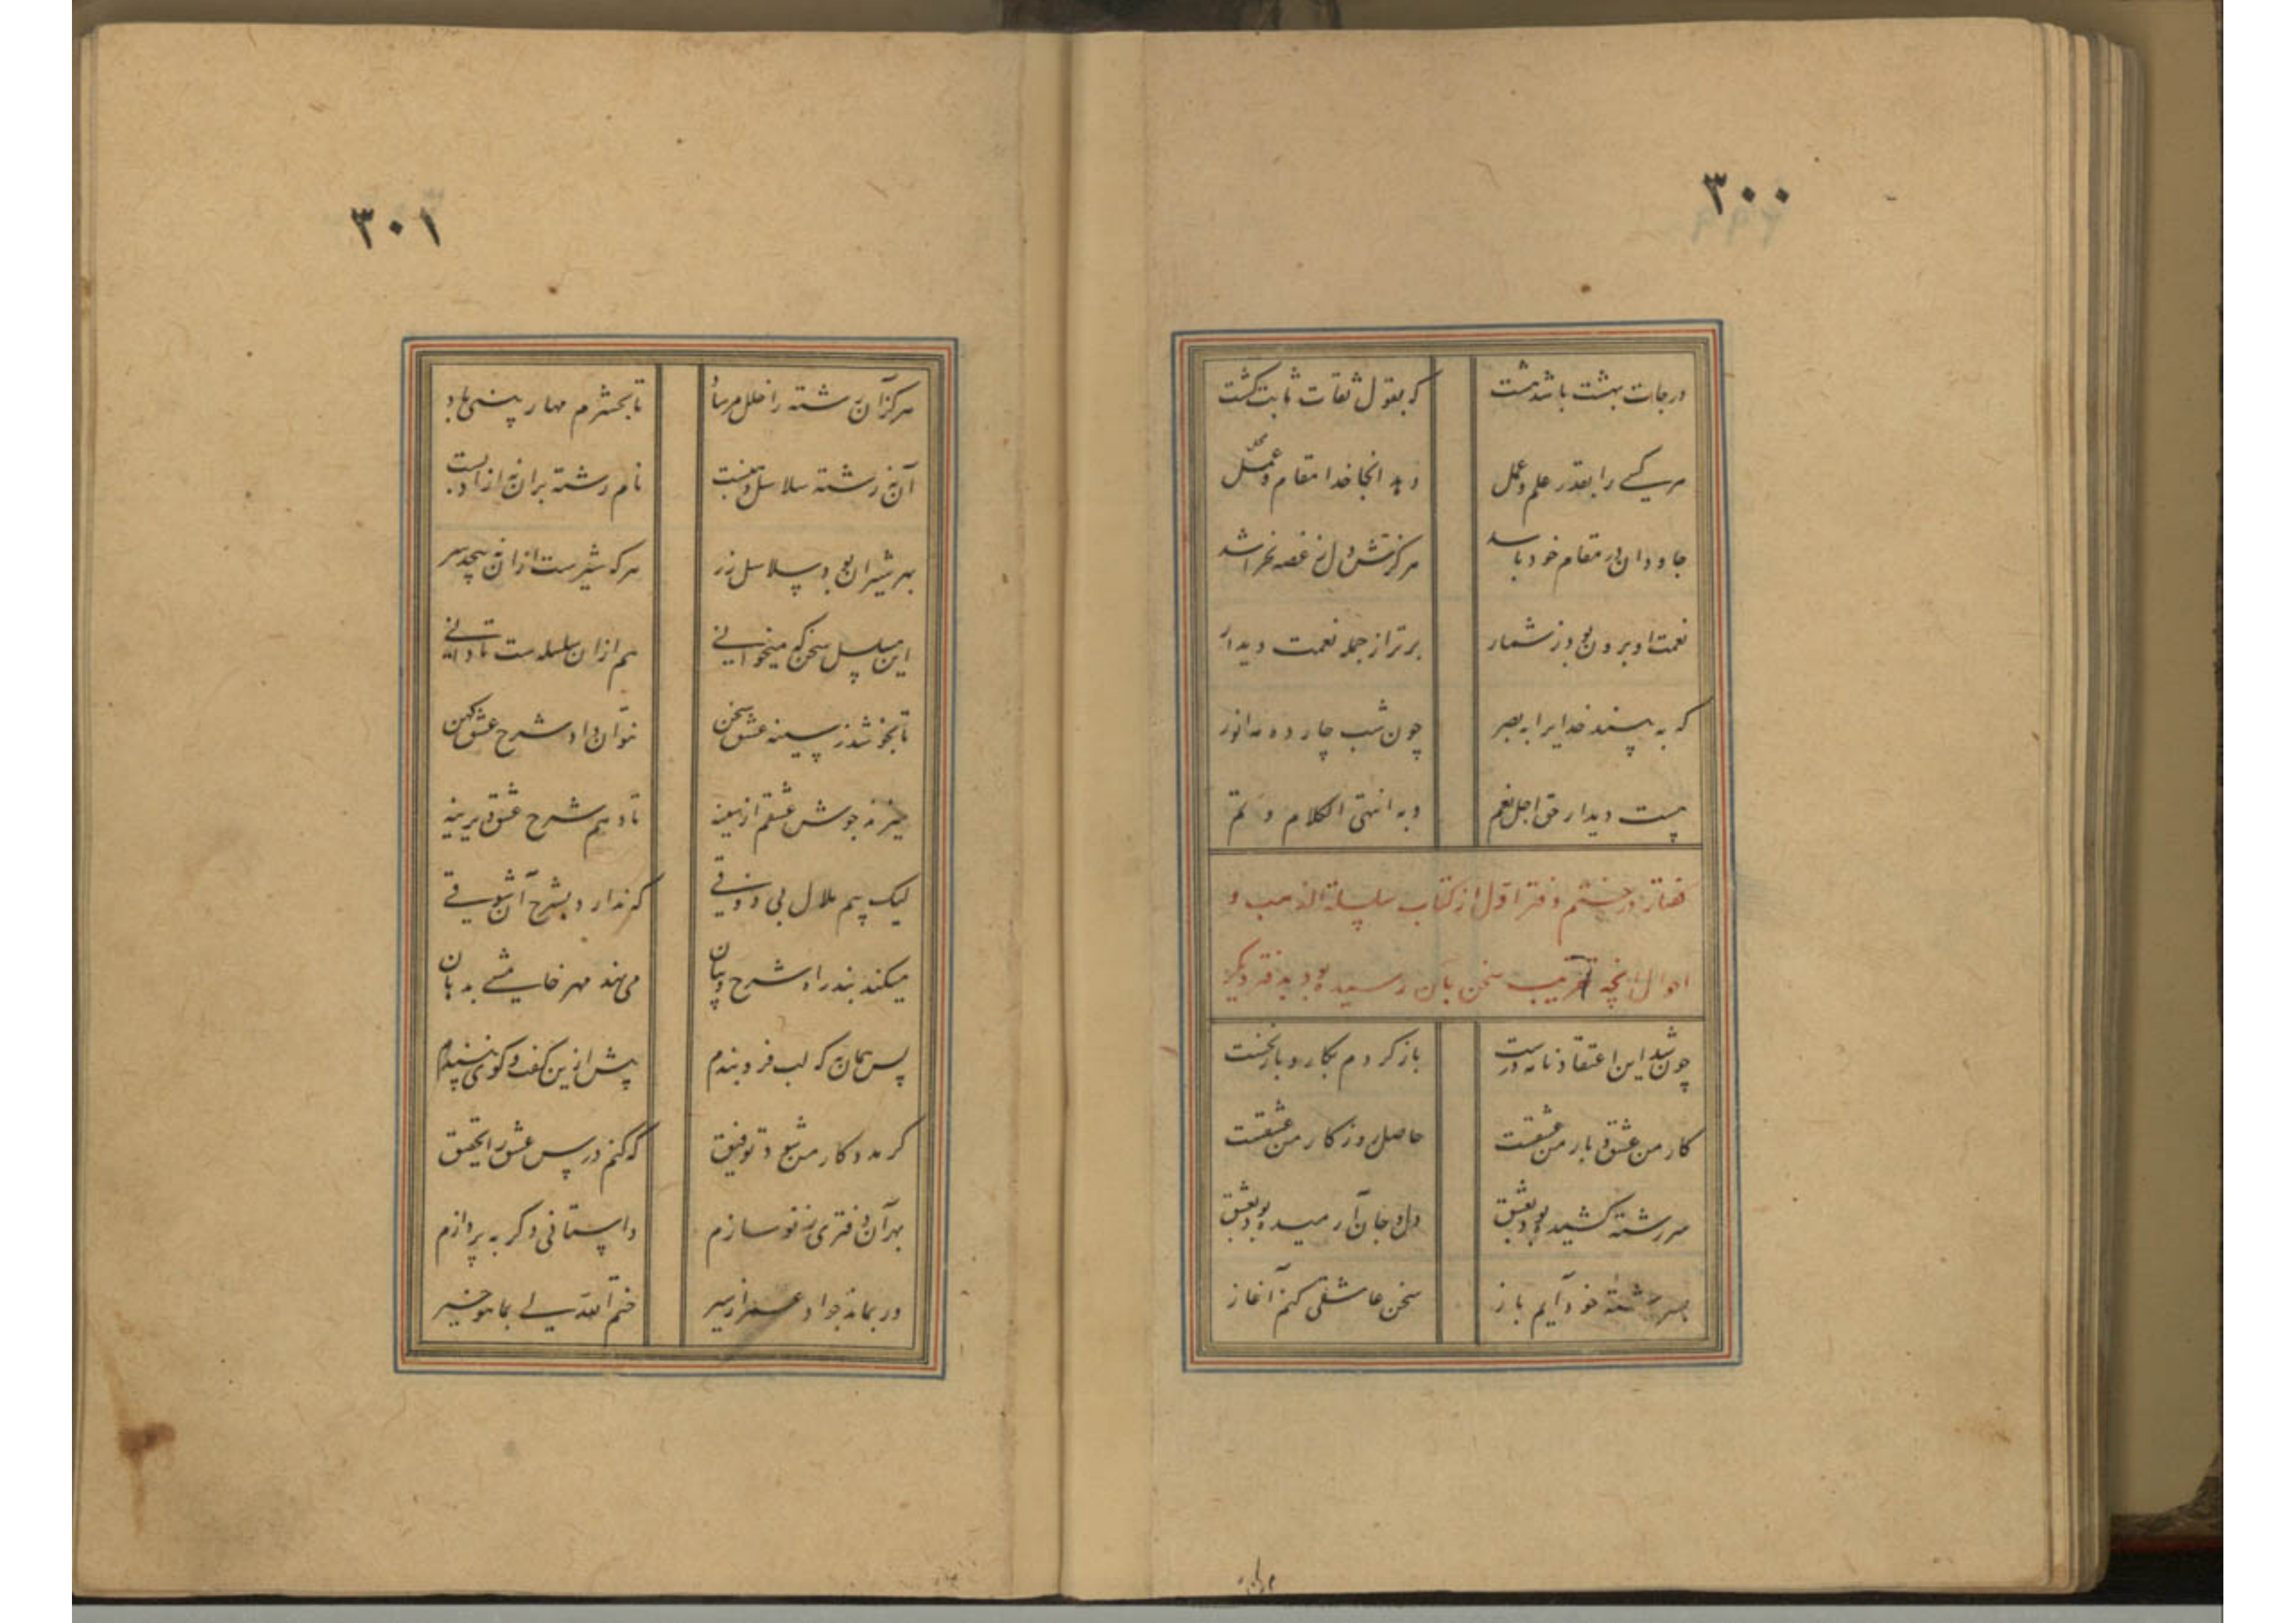 ٣٠٠
درجات بهشت باشد هشت که بقول ثقات ثابت گشت
هر کسی را بقدر علم و عمل دهد آنجا خدا مقام و محل
جاودان در مقام خود باشد هرگزش دل ز غصه نخراشد
نعمت او برون بود ز شمار برتر از جمله نعمت دیدار
که به بینند خدایرا به بصر چون شب چارده مه انور
هست دیدار حق اجل نعم و به انتهی الکلام و تم
در ختم دفتر اول از کتاب سلسلة الذهب و
احوال آنچه تقریب سخن بآن رسیده بود به دفتر دیگر
چون شد این اعتقادنامه درست باز گردم بکار و بار نخست
کار من عشق و بار من عشقست حاصل روزگار من عشقست
سر رشته کشیده بود بعشق دل و جان آرمیده بود بعشق
بسر رشته خود آیم باز سخن عاشقی کنم آغاز
٣٠١
هرگز آن رشته را خلل مرساد تا بحشرم مهار بینی باد
آن نه رشته سلاسل ذهبست نام رشته بران نه از ادبست
بهر شیران بود سلاسل زر هر که شیرست ازان نه پیچد سر
این مسلسل سخن که میخوانی هم ازان سلسله ست تا دانی
تا نجوشد ز سینه عشق سخن نتوان داد شرح عشق کهن
میزند جوش عشقم از سینه تا دهم شرح عشق دیرینه
لیک بیم ملال بی ذوقی که ندارد بشرح آن شوقی
میکند بند راه شرح و بیان می نهد مهر خامشی به دهان
پس همان به که لب فرو بندم بیش ازین گفت و گوی نپسندم
گر مددگار من شود توفیق که کنم درس عشق را تحقیق
بهر آن دفتری ز نو سازم داستانی دگر به پردازم
ور بماند جواد عمر از سیر ختم الله لی بما هو خیر